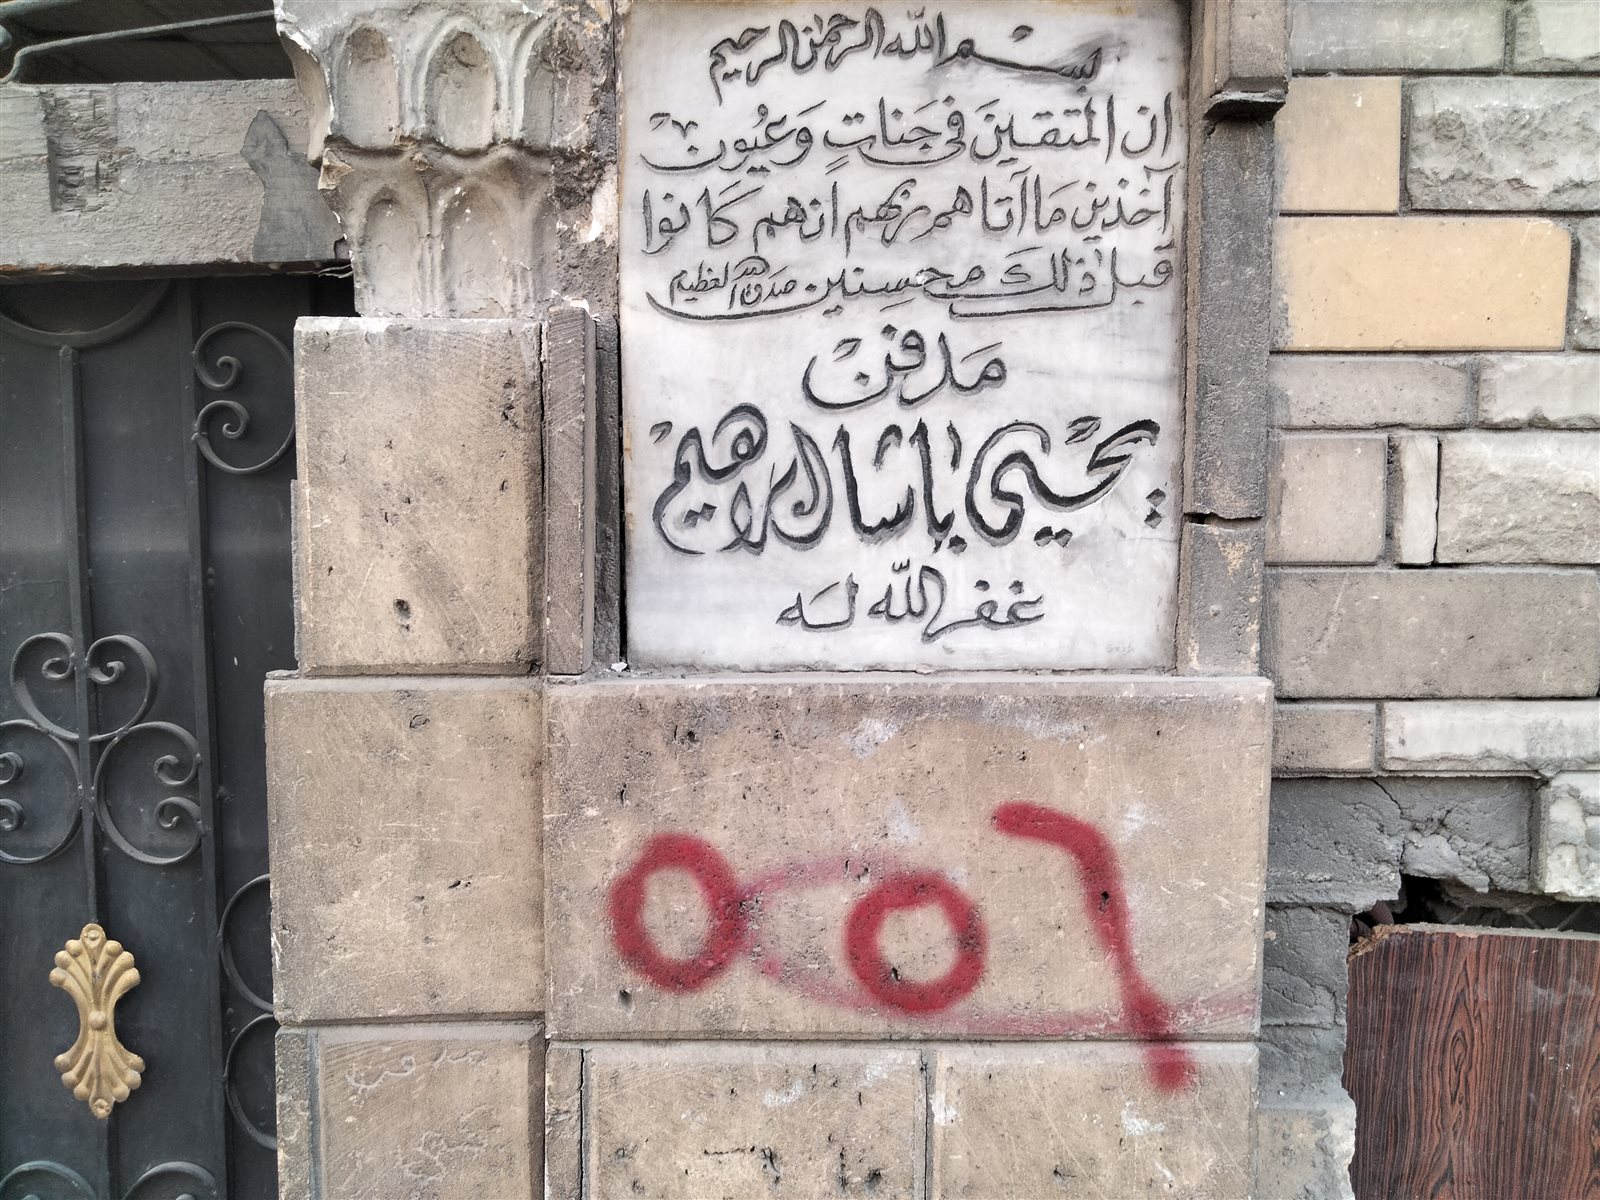 بسم الله الرحمن الرحيم
ان المتقين في جَنَاتٍ وَعُيُونْ
آخذين مَا آتاهم ربهم انهم كَانوا
قبل ذٰلك محسنين صدق الله العظيم
مَدفنْ
يحيى باشا ابراهيم
غفر الله له
٥٥٦